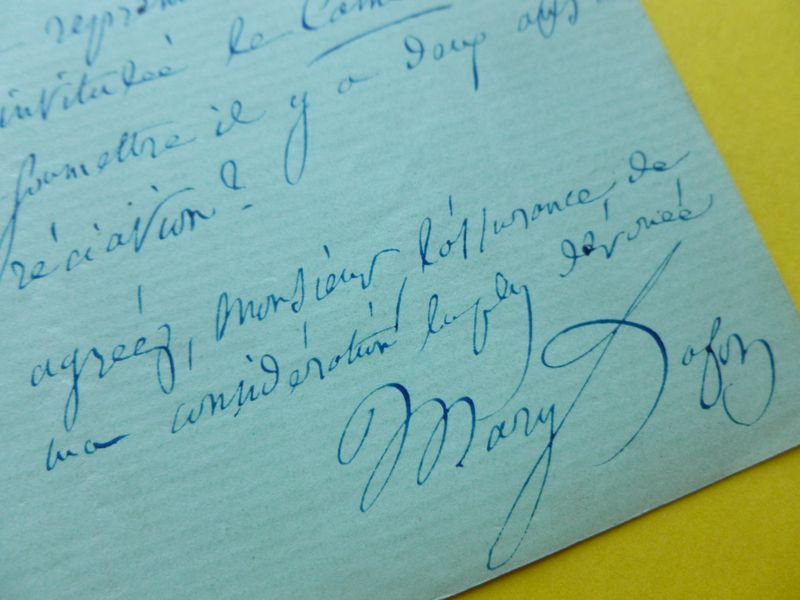 intitulée le
soumettre il y a deux ans
réciation?
agréez, Monsieur, l'assurance, de
ma considération la plus dévouée
Mary Lafon